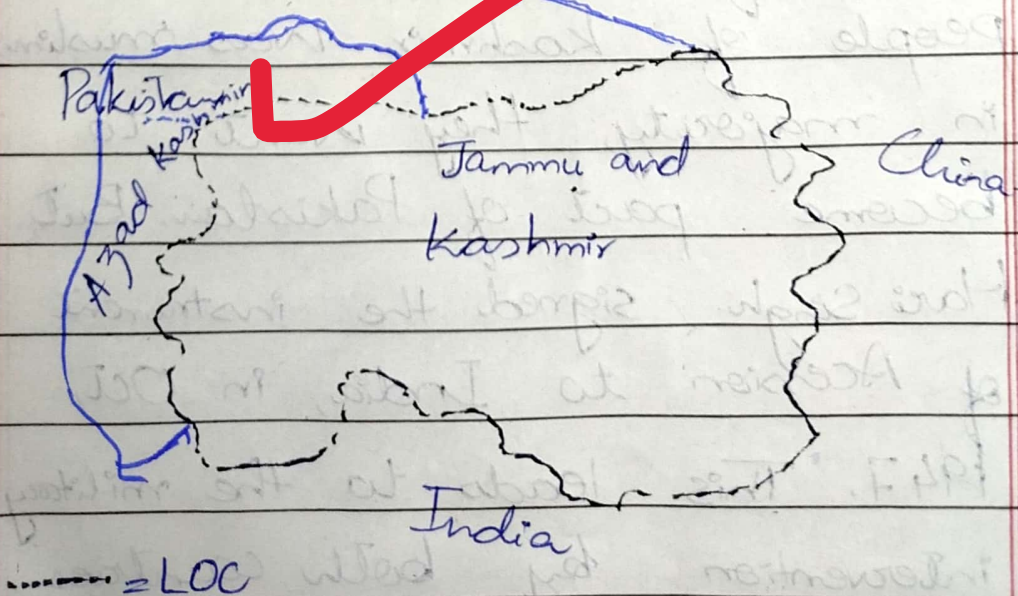 Pakistan
Azad Kashmir
Jammu and
Kashmir
China
India
= LOC